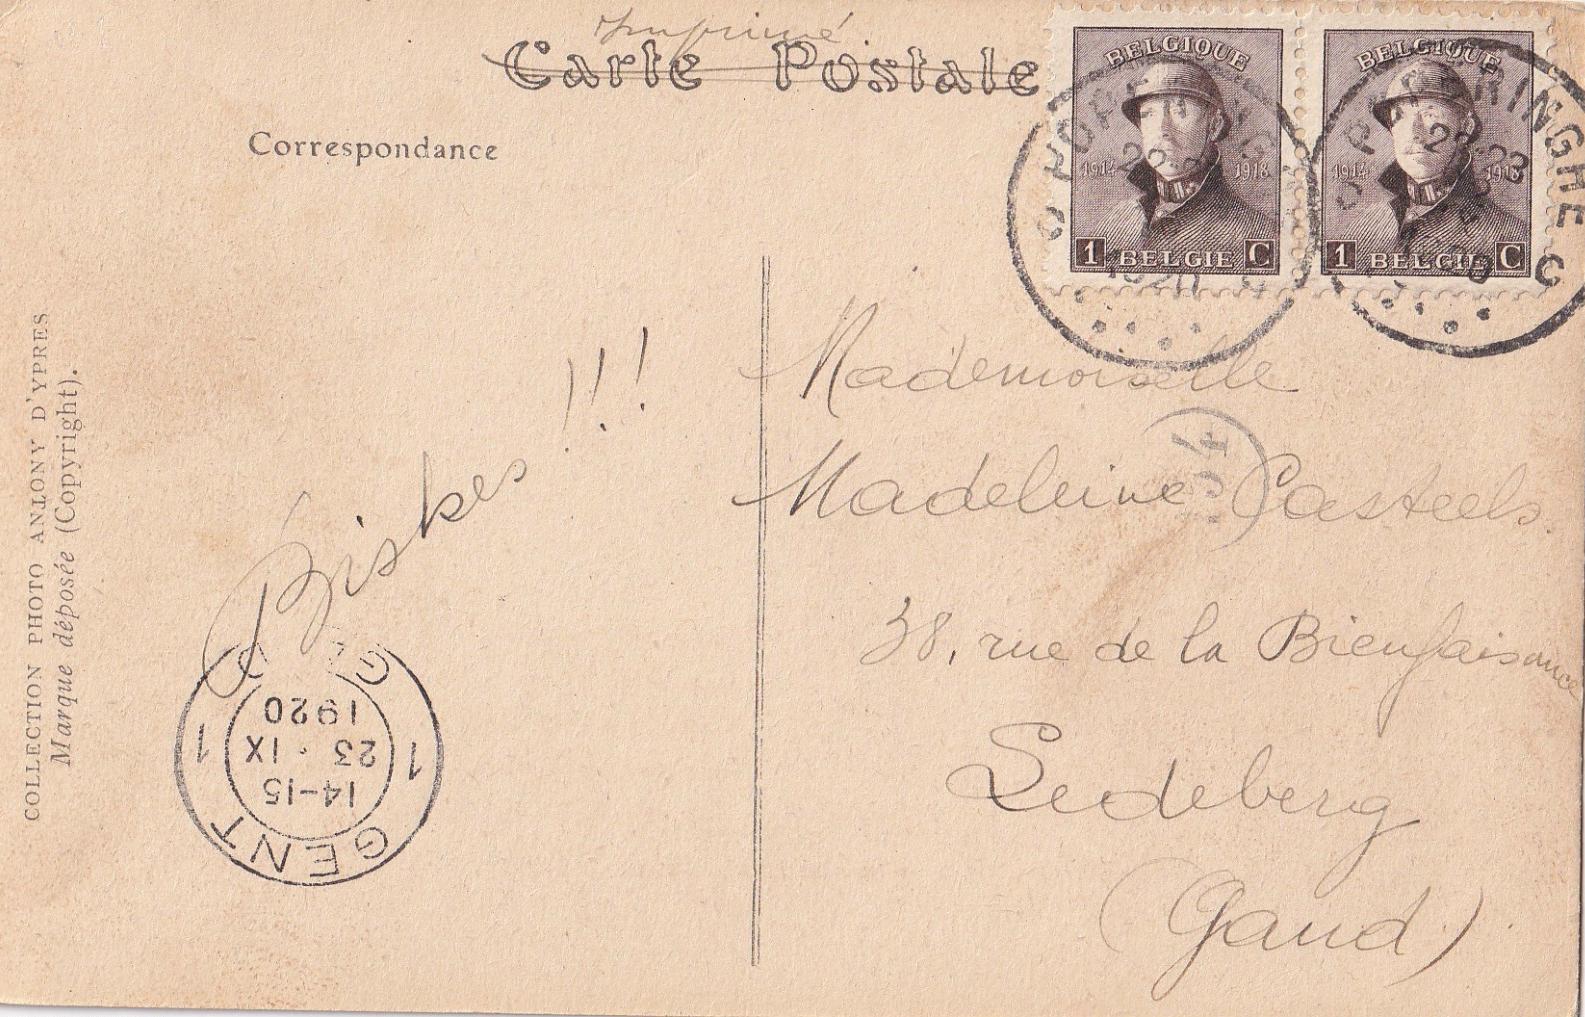 Imprimé
Carte Postale
Correspondance
BELGIQUE
1914 1918
1 BELGIE C
BELGIQUE
1914 1918
1 BELGIE C
POPERINGHE
22-23
1920
C C
COLLECTION PHOTO ANTONY D'YPRES
Marque déposée (Copyright).
!!!
Mademoiselle
Madeleine Casteels
38, rue de la Bienfaisance
Ledeberg
(Gand)
GENT
1 1
14-15
23 · IX
1920